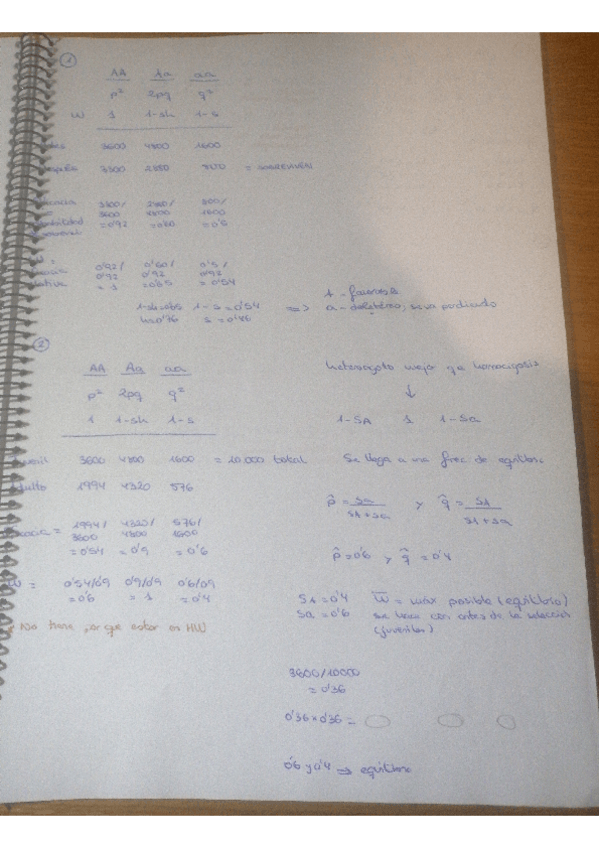 1
AA Aa aa
p² 2pq q²
W 1 1-sh 1-s
3600 4800 1600
3300 2880 800 =
3300/ 2880/ 800/
3600 4800 1600
=0'92 =0'60 =0'5
0'92/ 0'60/ 0'5/
0'92 0'92 0'92
=1 =0'65 =0'54
1-sh=0'65 1-s=0'54 => A - favorable
h=0'76 s=0'46 a - deletéreo,
2
AA Aa aa
p² 2pq q²
1 1-sh 1-s
3600 4800 1600 = 10.000 total
1944 4320 576
1944/ 4320/ 576/
3600 4800 1600
=0'54 =0'9 =0'6
W = 0'54/0'9 0'9/0'9 0'6/0'9
=0'6 =1 =0'4
No tiene por que estar en HW
heterozigoto mejor que homocigosis
↓
1-SA 1 1-Sa
Se llega a una frec de equilibrio
p̂ = Sa y q̂ = SA
SA+Sa SA+Sa
p̂=0'6 y q̂=0'4
SA=0'4 W̄ = máx posible (equilibrio)
Sa=0'6 se hace con antes de la selección
(juveniles)
3600/10000
= 0'36
0'36x0'36=
0'6 y 0'4 → equilibrio